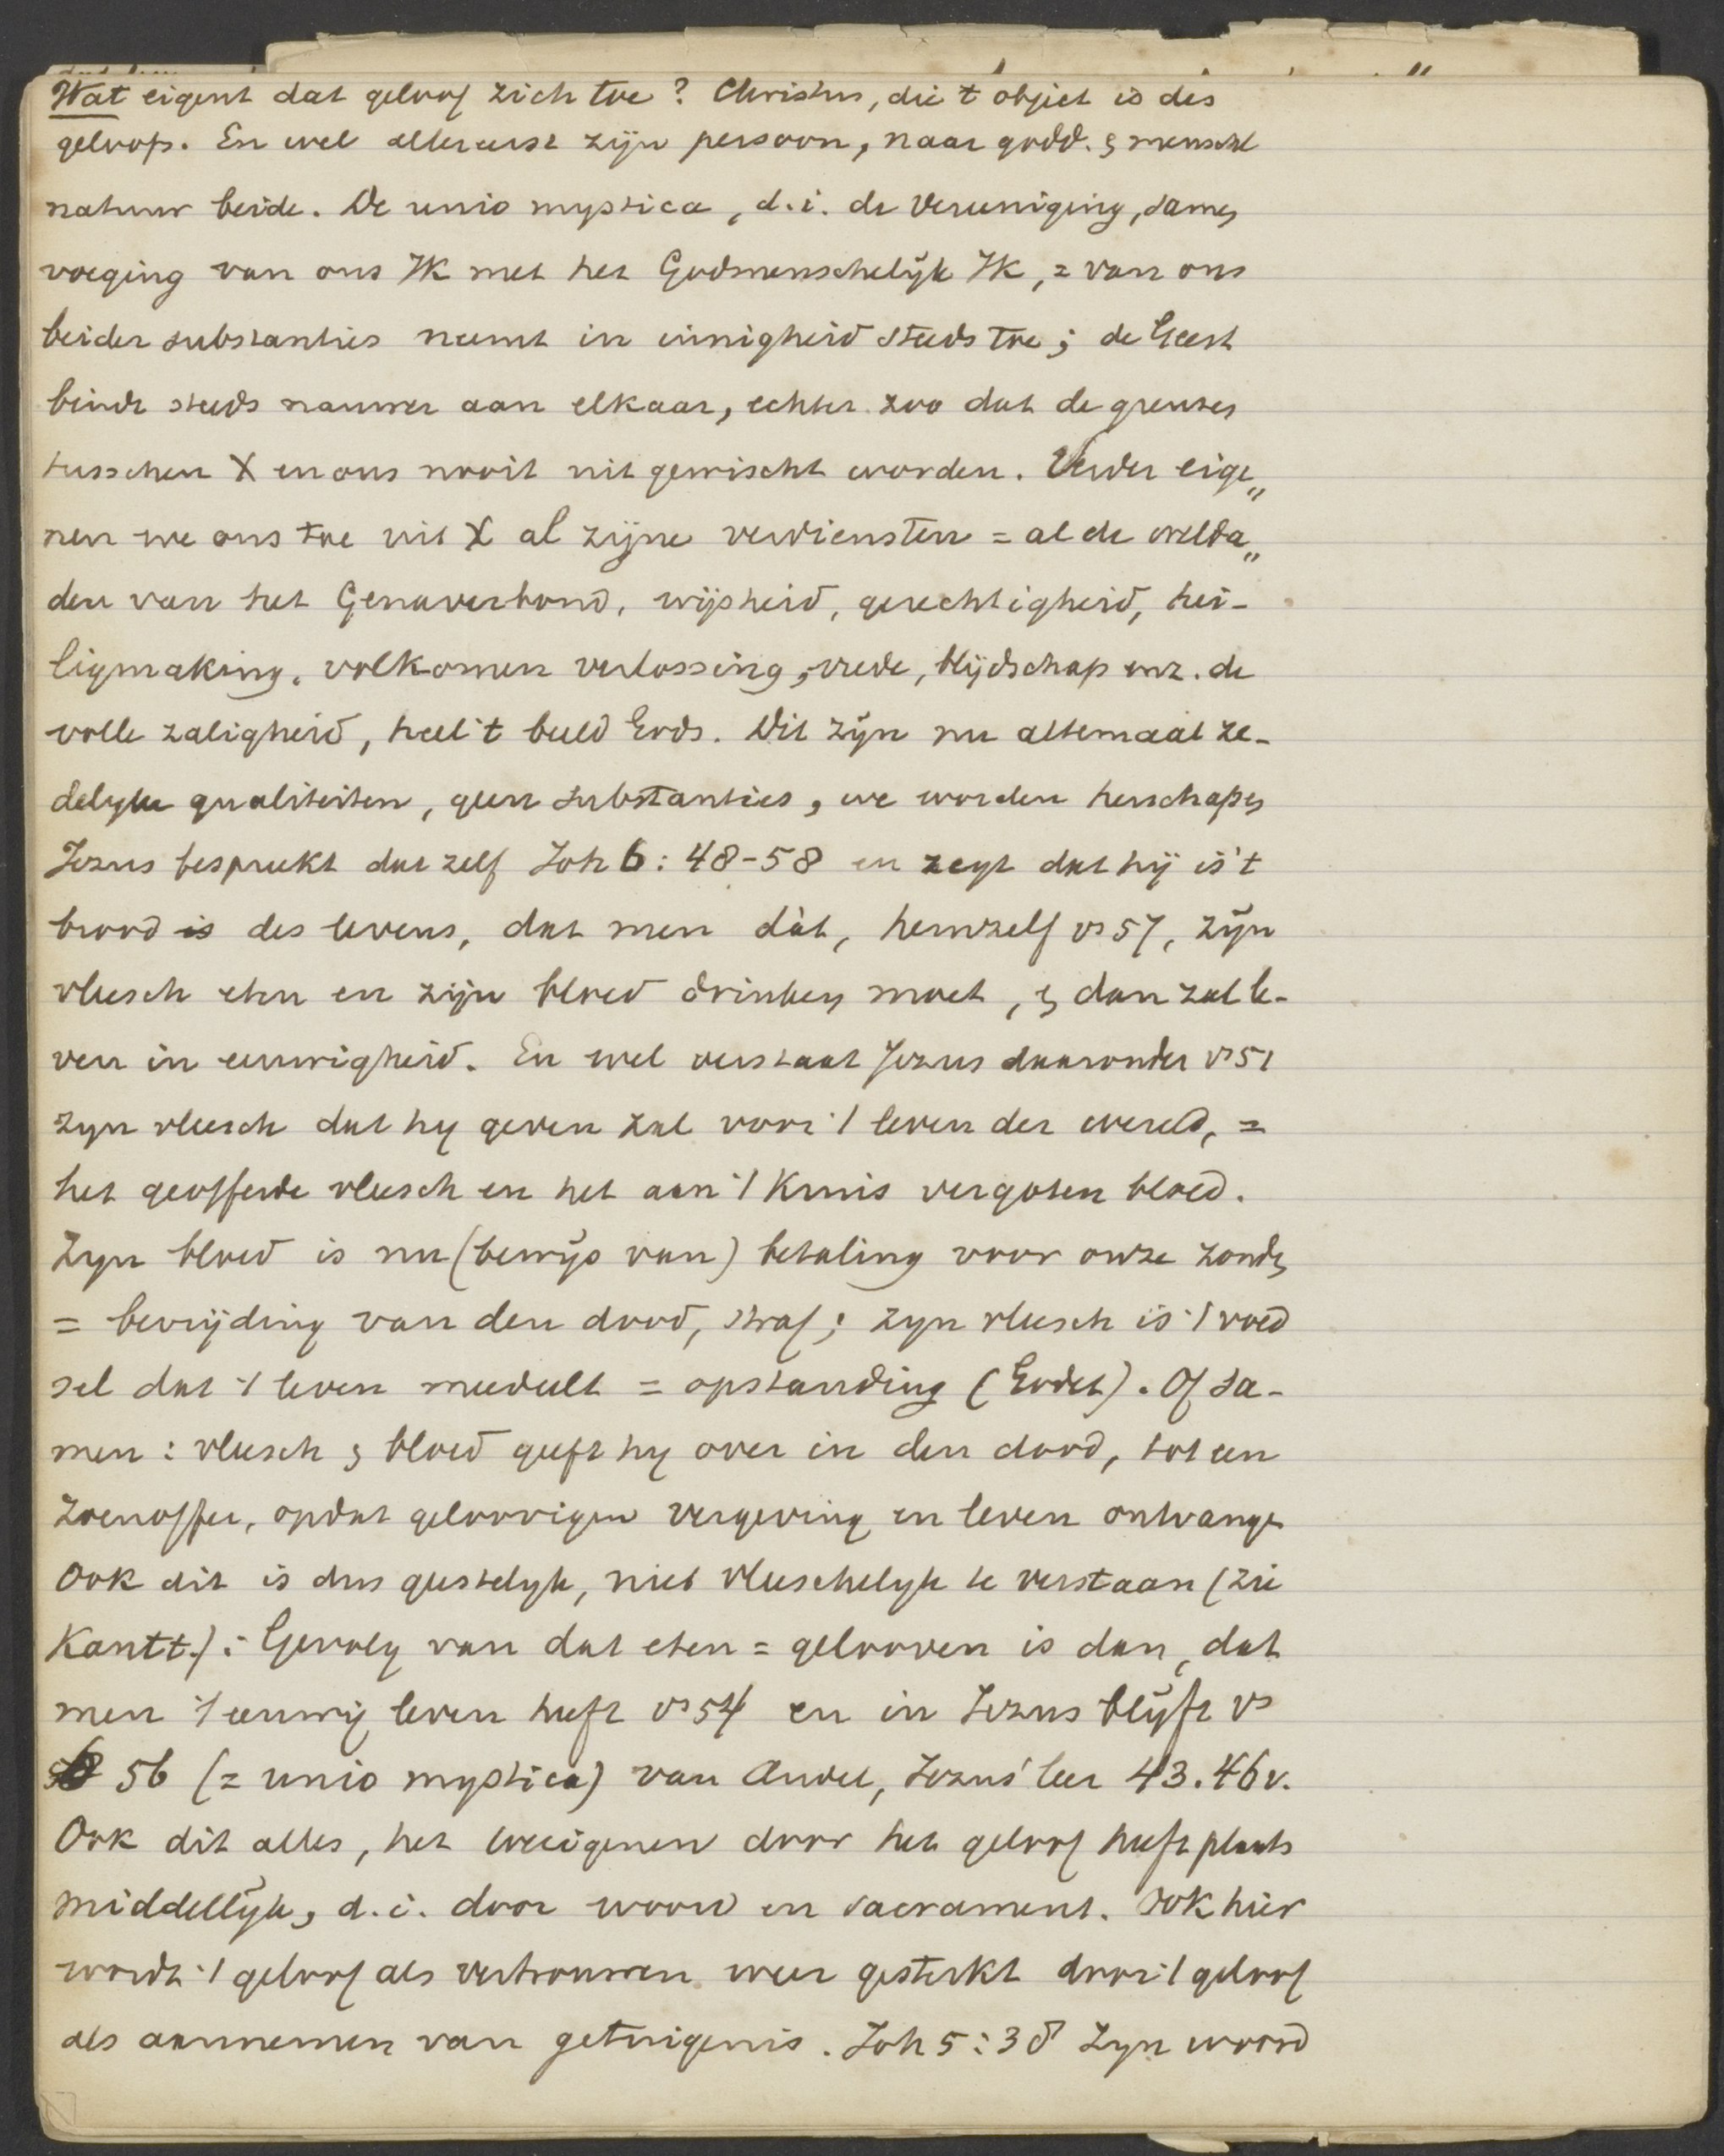 Wat eigent dat geloof zich toe? Christus, die 't object is des
geloofs. En wel allereerst zijn persoon, naar godd. & menschl
natuur beide. De unio mystica, d.i. de Vereeniging, samen
voeging van ons Ik met het Godmenschelijk Ik, = van ons
beider substanties neemt in innigheid steeds toe; de Geest
bindt steeds nauwer aan elkaar, echter zoo dat de grenzen
tusschen X en ons nooit uitgewischt worden. Verder eige„
nen we ons toe uit X al zijne verdiensten = al de welda„
den van het Genaverbond, wijsheid, gerechtigheid, hei-
ligmaking, volkomen verlossing, vrede, blijdschap enz. de
volle zaligheid, heel 't beeld Gods. Dit zijn nu altemaal ze-
delyke qualiteiten, geen substanties, we worden herschapen
Jezus bespreekt dat zelf Joh 6: 48-58 en zegt dat hij is 't
brood is des levens, dat men dàt, hemzelf vs 57, zijn
vleesch eten en zijn bloed drinken moet, & dan zal le-
ven in eeuwigheid. En wel verstaat Jezus daaronder vs 51
zyn vleesch dat hy geven zal voor 't leven der wereld, =
het geofferde vleesch en het aan 't Kruis vergoten bloed.
Zyn bloed is nu (bewijs van) betaling voor onze zonden
= bevrijding van den dood, straf; zyn vleesch is 't voed
sel dat 't leven meedeelt = opstanding (Godet). Of sa-
men: vleesch & bloed geeft hy over in den dood, tot een
zoenoffer, opdat geloovigen vergeving en leven ontvange
Ook dit is dus geestelyk, niet vleeschelyk te verstaan (zie
Kantt.): Gevolg van dat eten = gelooven is dan, dat
men 't eeuwig leven heeft vs 54 en in Jezus blijft vs
56 (= unio mystica) van Andel, Jezus' leer 43.46v.
Ook dit alles, het toeeigenen door het geloof heeft plaats
middellijk, d.i. door woord en sacrament. Ook hier
wordt 't geloof als vertrouwen weer gesterkt door 't geloof
als aannemen van getuigenis. Joh 5:38 Zyn woord